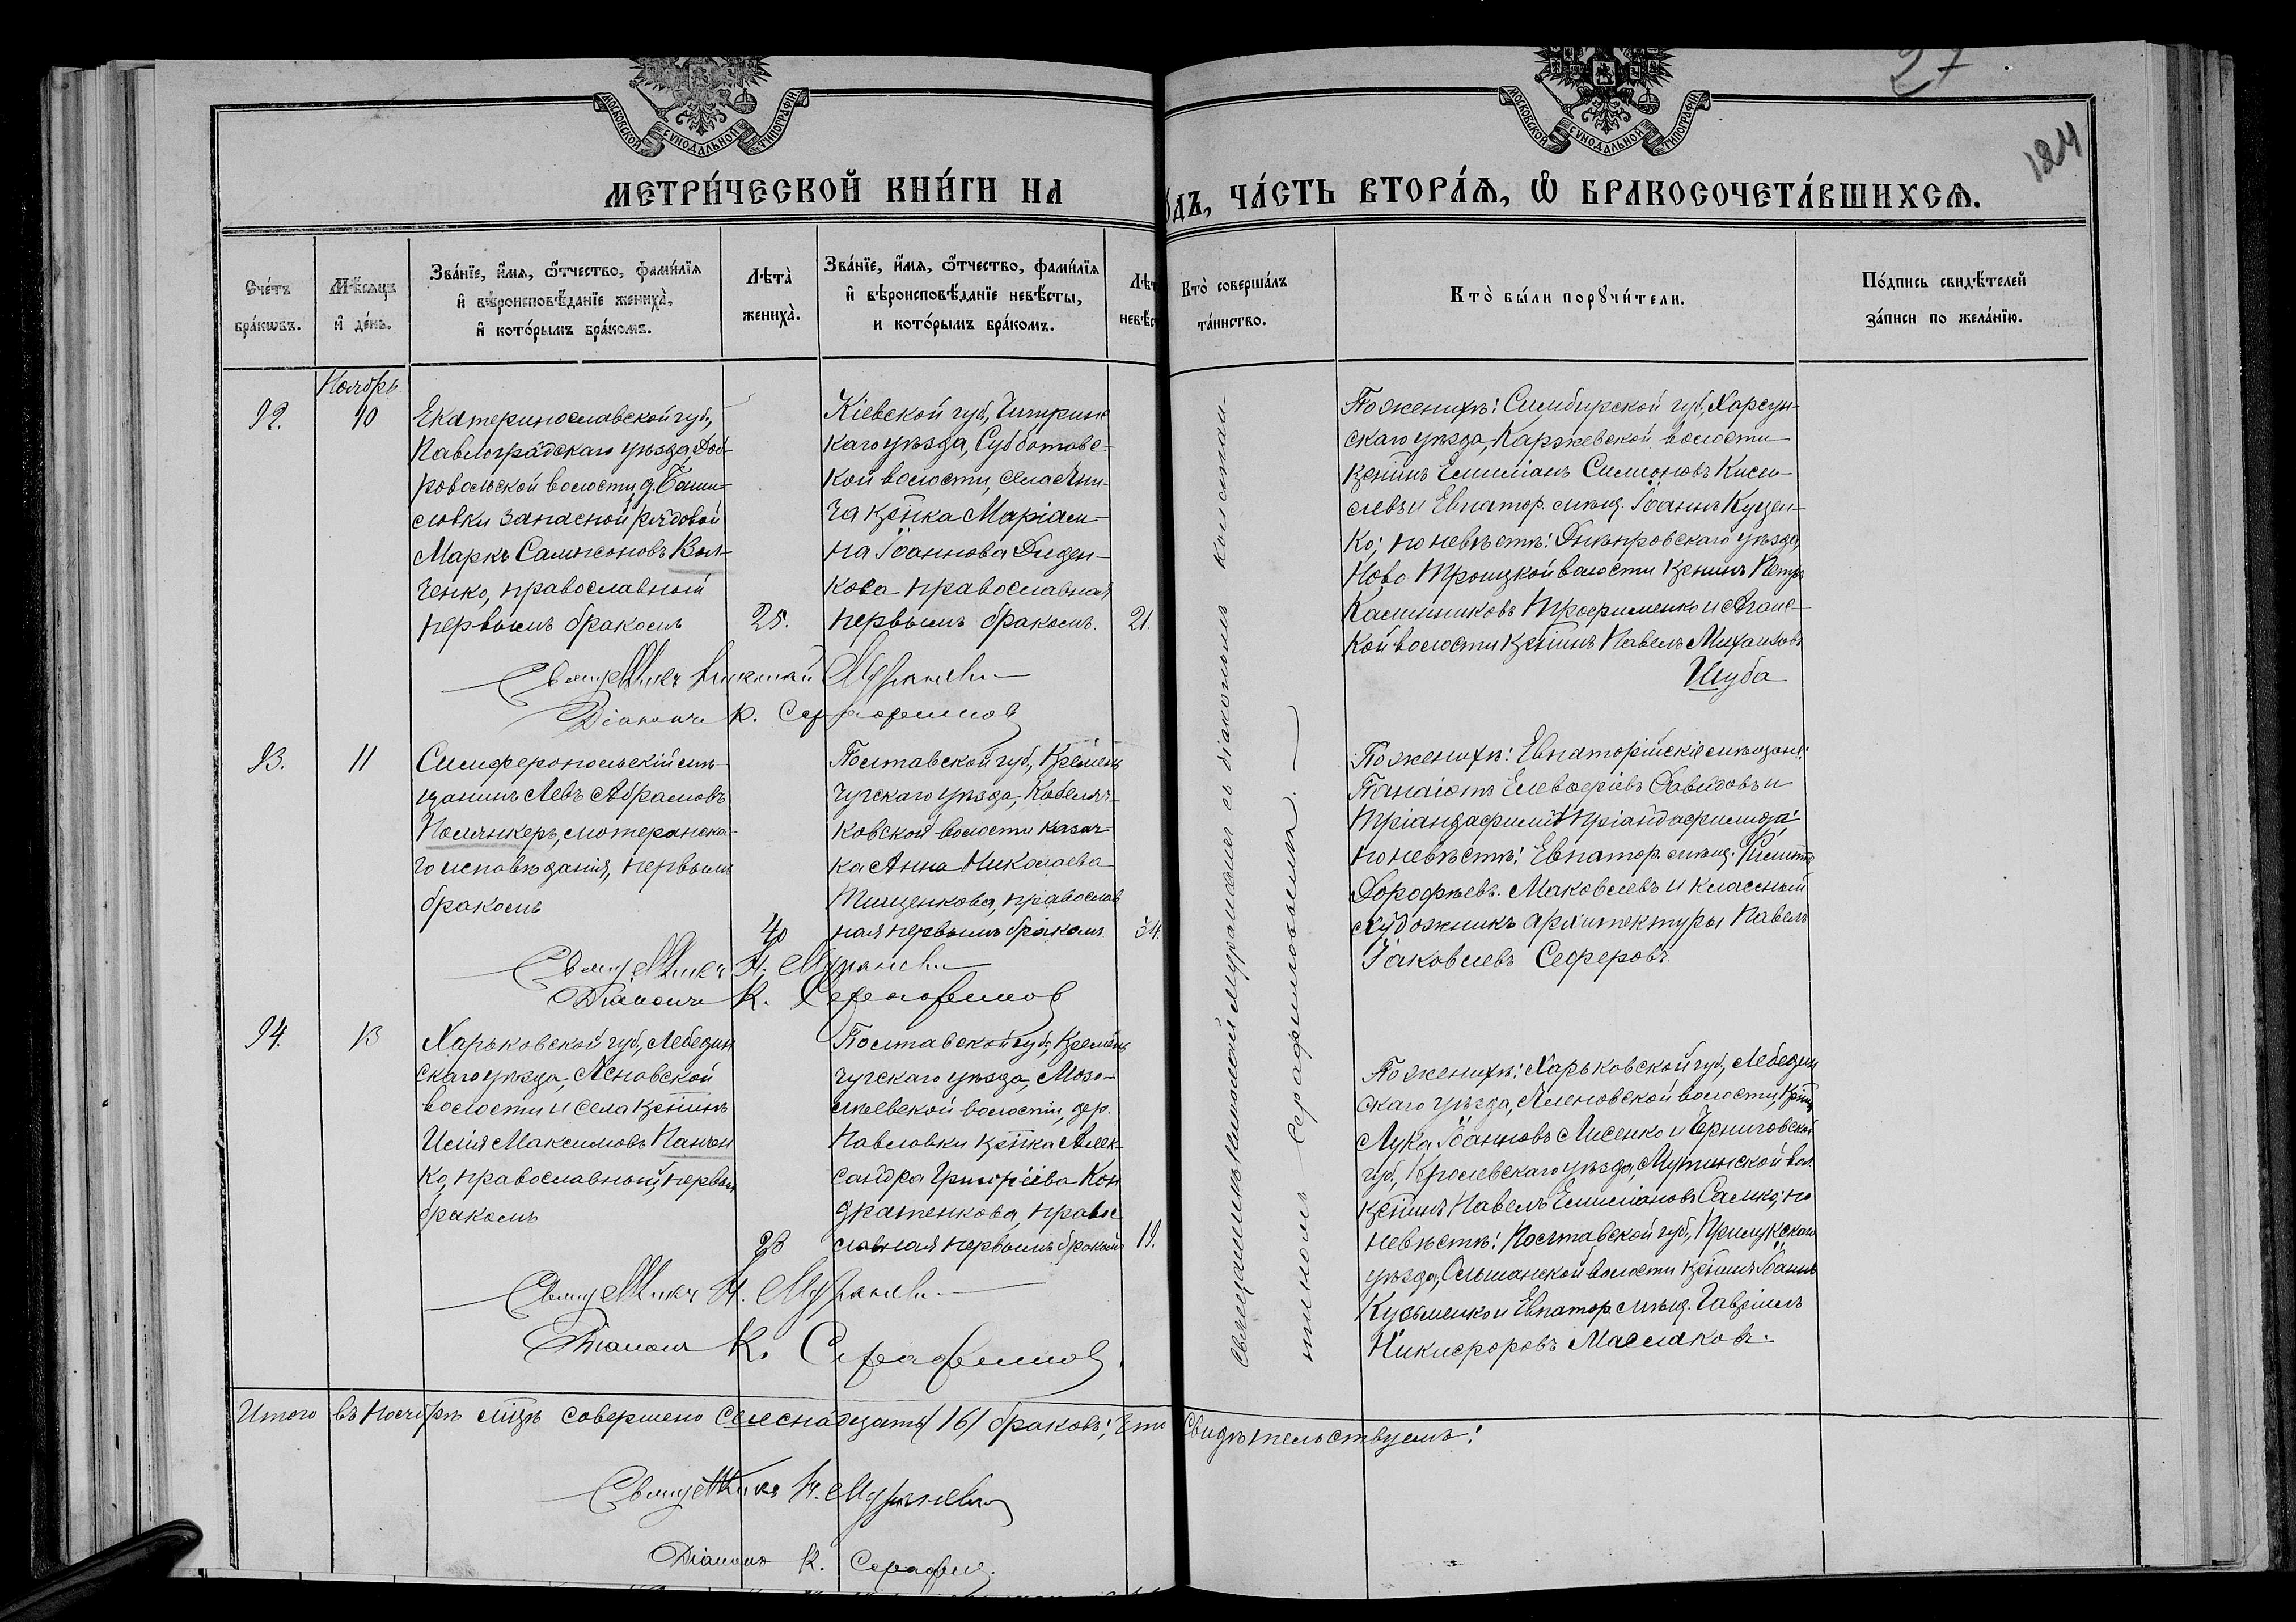 27
184
МОСКОВСКОЙ СѴНОДАЛЬНОЙ ТИПОГРАФІИ
МОСКОВСКОЙ СѴНОДАЛЬНОЙ ТИПОГРАФІИ
МЕТРИ́ЧЕСКОЙ КНИ́ГИ НА
ѺДЪ, ЧА́СТЬ ВТОРА́Я, Ѡ҆ БРАКОСОЧЕТА́ВШИХСѦ.
Сче́тъ бра́кѡвъ.
Мѣ́сяцъ и҆ де́нь.
Зва́нїе, и҆́мѧ, ѻ҆́тчество, фами́лїѧ
и҆ вѣроисповѣ́данїе жениха̀,
и҆ кото́рымъ бра́комъ.
Лѣта̀ жениха̀.
Зва́нїе, и҆́мѧ, ѻ҆́тчество, фами́лїѧ
и҆ вѣроисповѣ́данїе невѣ́сты,
и кото́рымъ бра́комъ.
Кто̀ соверша́лъ та́инство.
Кто̀ бы́ли порꙋчи́тели.
По́дпись свидѣ́телей
за́писи по жела́нїю.
Ноябрь
92.
10
Екатеринославской губ.,
Павлоградскаго уѣзда, Доб-
ровольской волости, д. Бони-
словки запасной рядовой
Маркъ Сампсоновъ Вол-
ченко, православный
первымъ бракомъ
25.
Кіевской губ., Чигирин-
каго уѣзда, Субботовс-
кой волости, села Яни-
ча кр-нка Маріам-
на Іоаннова Диден-
кова православная
первымъ бракомъ.
21.
По женихѣ: Симбирской губ., Карсун-
скаго уѣзда, Каржевской волости
кр-нинъ Емиліанъ Симеоновъ Кисе-
левъ и Евпатор. мѣщ. Іоаннъ Куцен-
ко; по невѣстѣ: Днѣпровскаго уѣзда,
Ново Троицкой волости кр-нинъ Петръ
Калинниковъ Трофименко и Агаис-
кой волости кр-нинъ Павелъ Михаиловъ
Шуба
Священникъ Николай Мураневи
Діаконъ К. Серафимовъ
93.
11
Симферопольскій мѣ-
щанинъ Левъ Абрамовъ
Полункеръ, лютеранска-
го исповѣданія, первымъ
бракомъ
40
Полтавской губ., Кремен-
чугскаго уѣзда, Кобеляч-
ковской волости казач-
ка Анна Николаева
Тищенкова, православ
ная первымъ бракомъ
34.
По женихѣ: Евпаторійскіе мѣщане:
Панаіотъ Елевферіевъ Давидовъ и
Тріандафилъ Тріандафилиди;
по невѣстѣ: Евпатор. мѣщ. Филиппъ
Дорофѣевъ Маковлевъ и классный
художникъ архитектуры Павелъ
Іаковлевъ Сеферовъ.
Священникъ Н. Мураневи
Діаконъ К. Серафимов
94.
13
Харьковской губ., Лебедин
скаго уѣзда, Асновской
волости и села кр-нинъ
Илія Максимовъ Панчен
ко, православный, первымъ
бракомъ
28
Полтавской губ., Кремен
чугскаго уѣзда, Мозо-
лѣевской волости, дер.
Павловки кр-нка Алек-
сандра Григоріева Кон
дратенкова, право-
славная первымъ бракомъ
19.
По женихѣ: Харьковской губ., Лебедин
скаго уѣзда, Аленовской волости, кр-нинъ
Лука Іоанновъ Лисенко и Черниговской
губ., Кролевскаго уѣзда, Мутинской вол.
кр-нинъ Павелъ Емиліановъ Салико; по
невѣстѣ: Полтавской губ., Прилукскаго
уѣзда, Ольшанской волости кр-нинъ Іоаннъ
Кузьменко и Евпатор. мѣщ. Гавріилъ
Никифоровъ Маслаковъ.
Священникъ Н. Мураневи
Діаконъ К. Серафимовъ
Священникомъ Николаемъ Мураневичемъ съ діакономъ Констан-
тиномъ Серафимовымъ.
Итого въ Ноябрѣ м-цѣ совершено шестнадцать /16/ браковъ; что свидѣтельствуемъ:
Священникъ Н. Мураневичъ
Діаконъ К. Серафим.